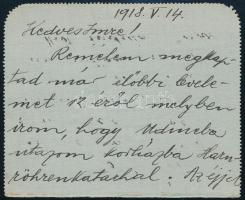 1918. V. 14.
Kedves Imre!
Remélem megkap-
tad már előbbi levele-
met is melyben
írom, hogy Udineba
utazom kórházba Harn-
röhrenkatarral. Az éjjel